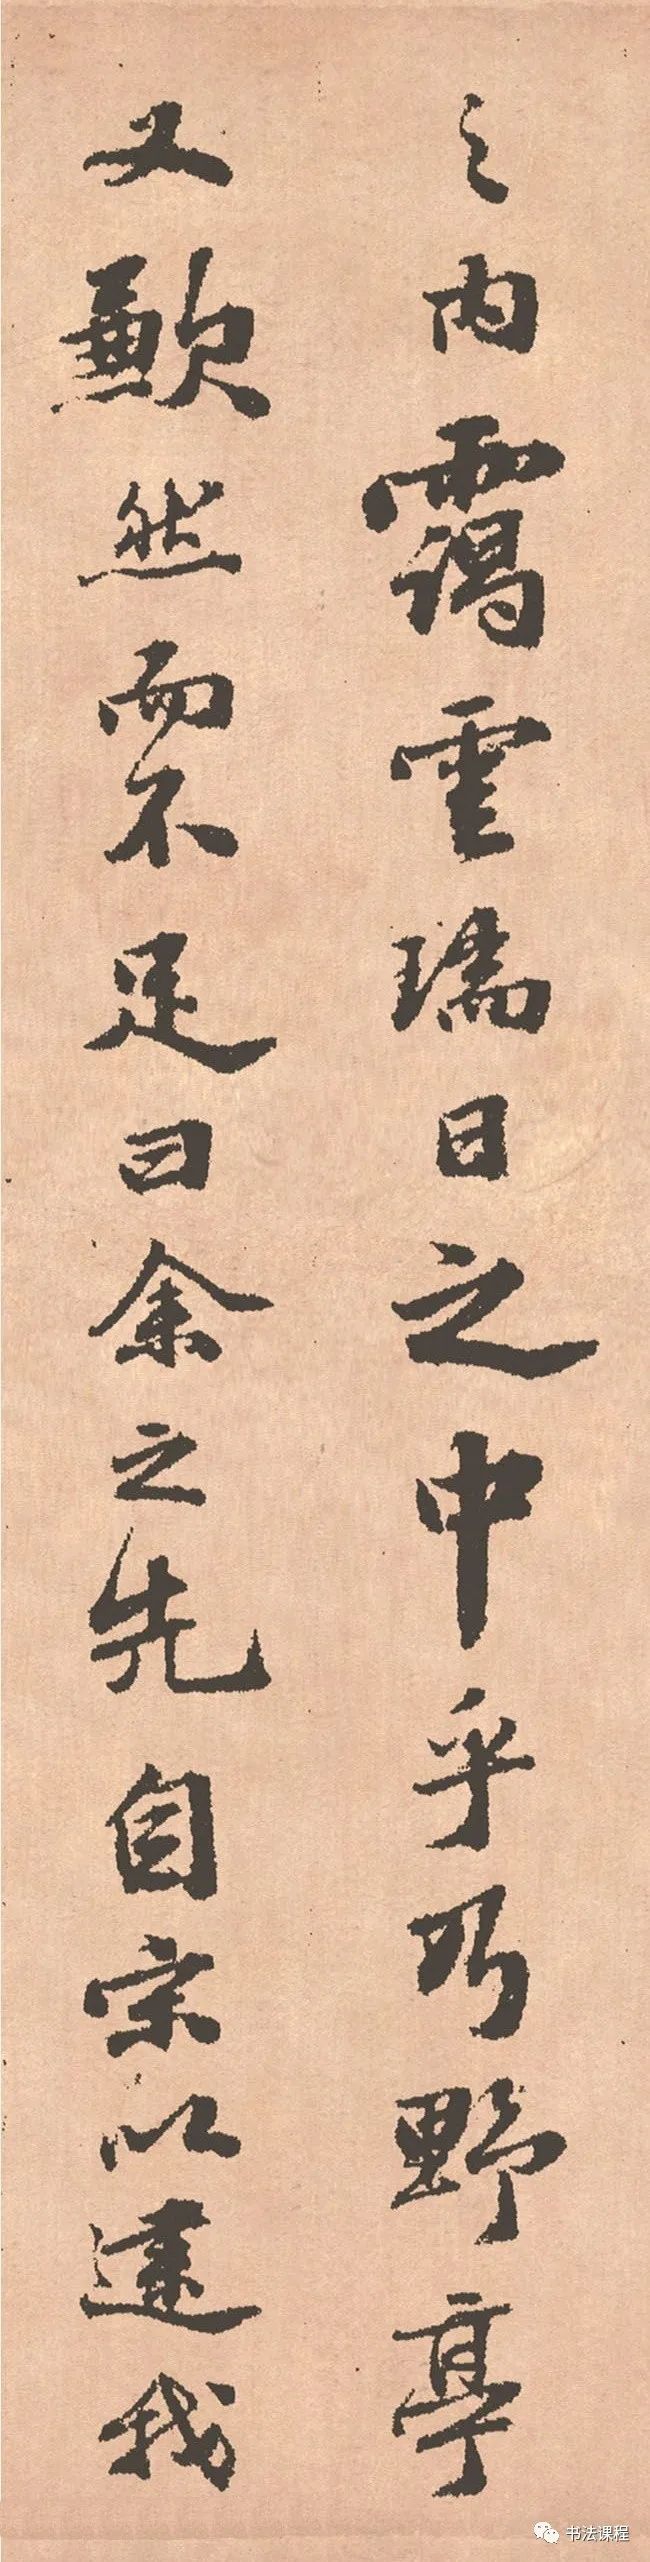 之内霭雲瑞日之中乎乃野亭
又歉然而不足曰余之先自宗以逮我
书法课程